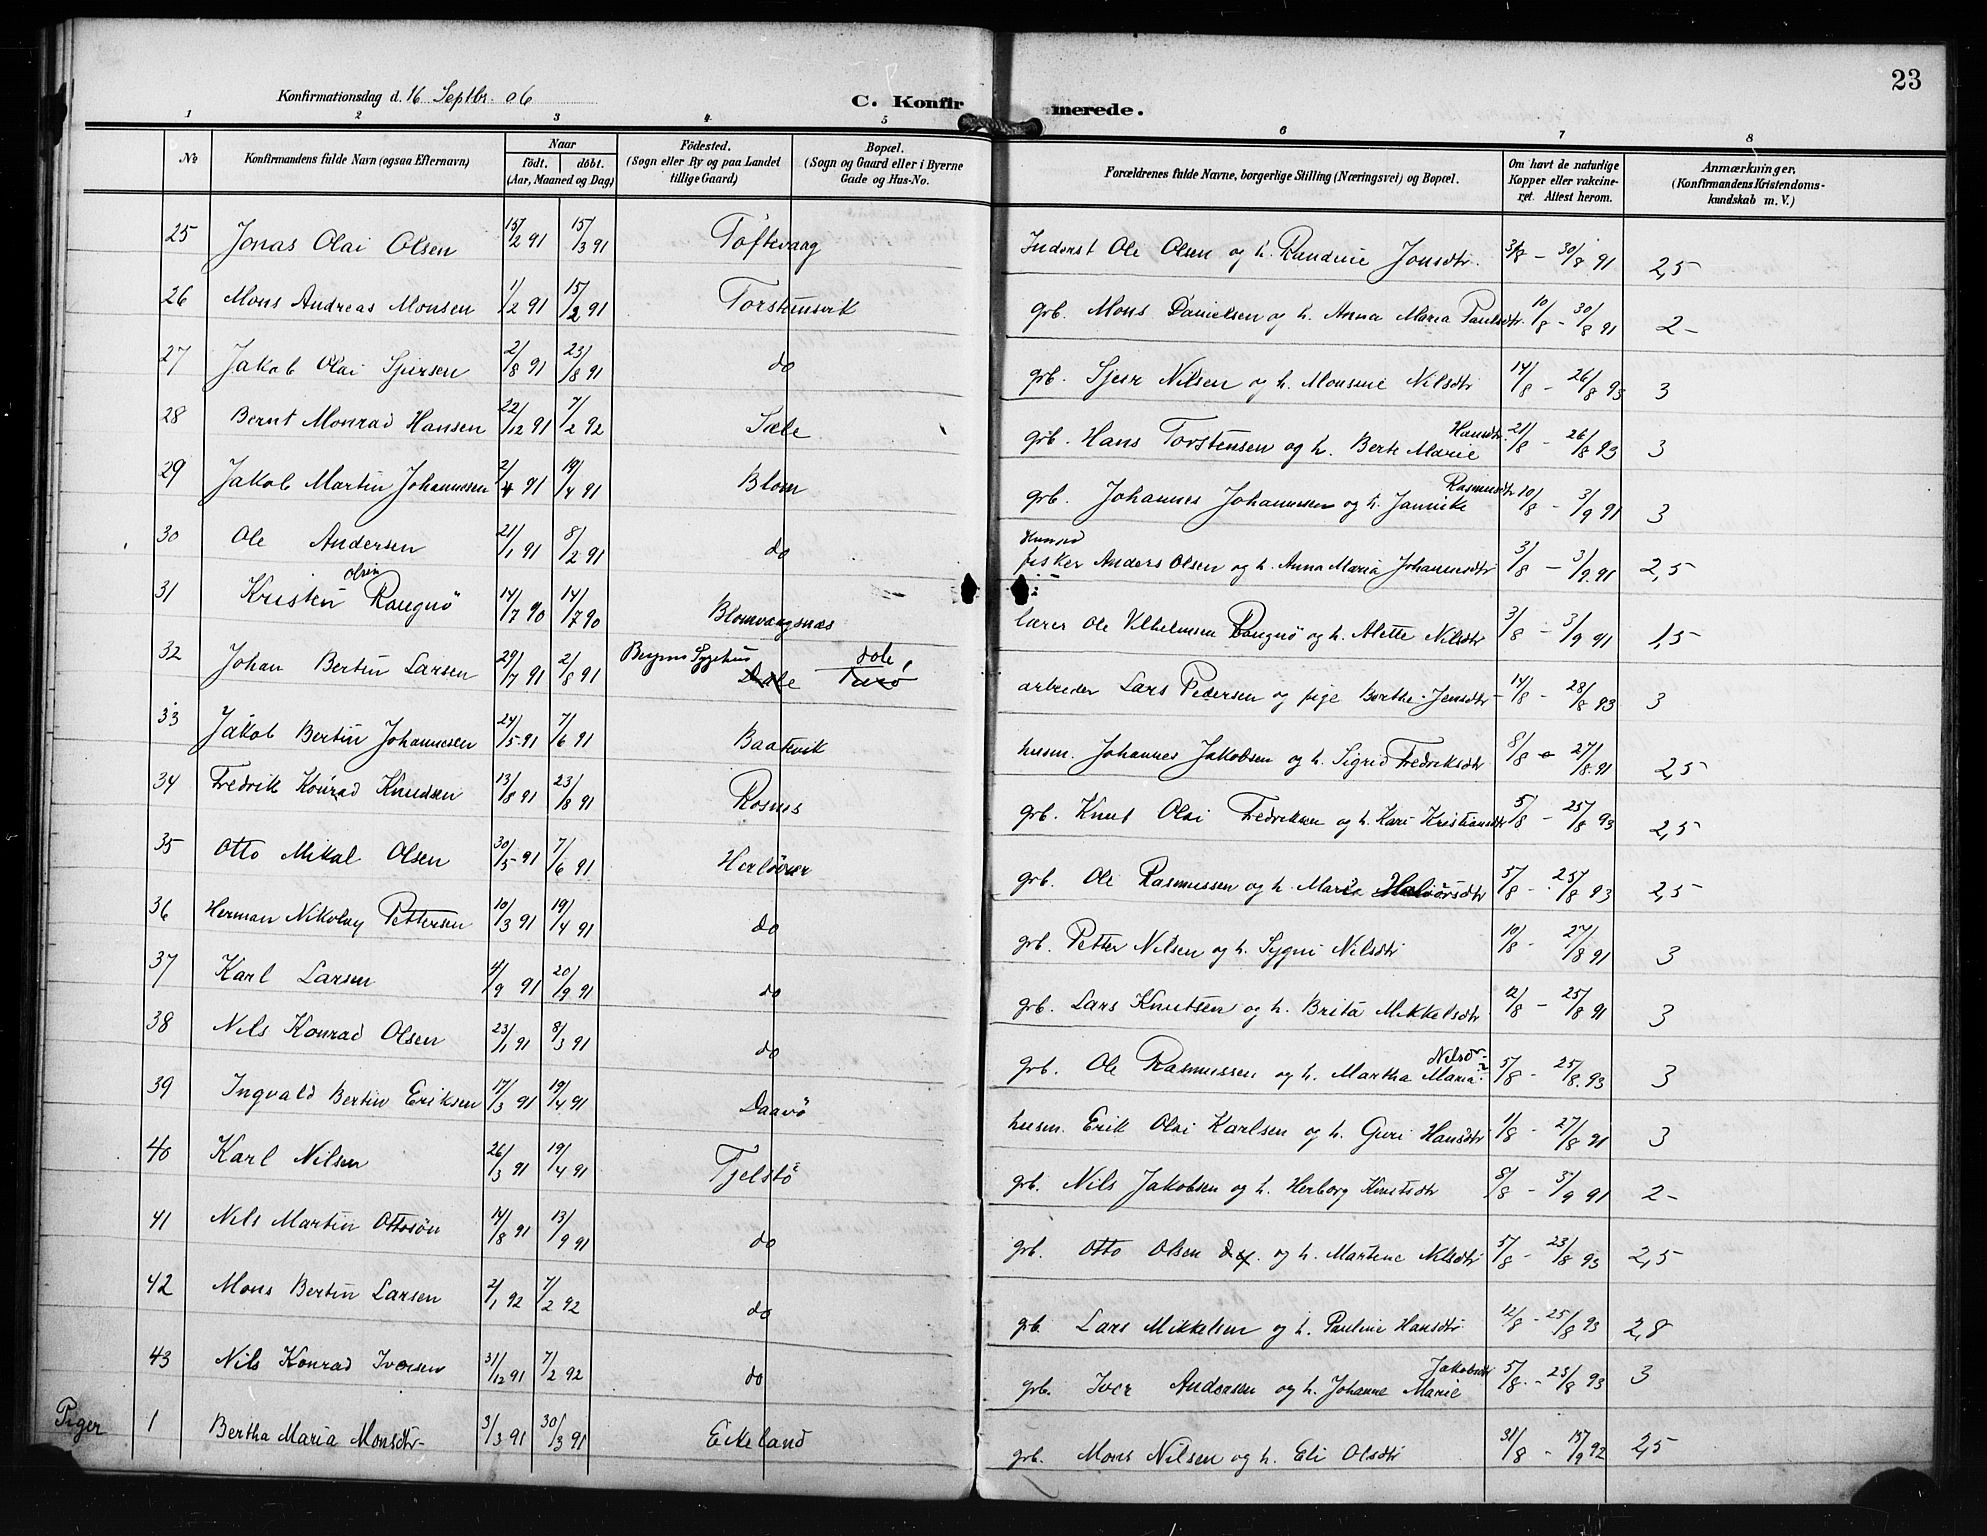 23
Konfirmationsdag d. 16 Septbr. 06
C. Konfirmerede.
1 2 3 4 5 6 7 8
No
Konfirmandens fulde Navn (ogsaa Efternavn)
Naar
født. døbt.
(Aar, Maaned og Dag)
Fødested.
(Sogn eller By og paa Landet
tillige Gaard)
Bopæl.
(Sogn og Gaard eller i Byerne
Gade og Hus-No.
Forældrenes fulde Navne, borgerlige Stilling (Næringsvei) og Bopæl.
Om havt de naturlige
Kopper eller vakcine-
ret. Attest herom.
Anmærkninger,
(Konfirmandens Kristendoms-
kundskab m. V.)
25 Jonas Olai Olsen 15/2 91 15/3 91 Toftevaag Inderst Ole Olsen og h. Randine Jonsdtr. - 30/8 91 2,5
26 Mons Andreas Monsen 1/2 91 15/2 91 Torstensvik grb. Mons Danielsen og h. Anna Maria Paulsdtr. 10/8 - 30/8 91 2-
27 Jakob Olai Sjursen 2/8 91 23/8 91 do grb. Sjur Nilsen og h. Monsine Nilsdtr 14/8 - 26/8 93 3
28 Bernt Monrad Hansen 22/12 91 7/2 92 Sæle grb. Hans Torstensen og h. Berte Marie Hansdtr. 21/8 - 26/8 93 3
29 Jakob Martin Johannesen 2/4 91 19/4 91 Blom grb. Johannes Johannessen og h. Jannike Rasmusdtr 10/8 - 3/9 91 3
30 Ole Andersen 21/1 91 8/2 91 do fisker Anders Olsen og h. Anna Maria Johannesdtr 3/8 - 3/9 91 2,5
31 Kristen Olsen Rangnö 14/7 90 14/7 90 Blomvaagsnæs lærer Ole Vilhelmsen Rangnö og h. Alette Nilsdtr 3/8 - 3/9 91 1,5
32 Johan Bertin Larsen 29/7 91 2/8 91 Bergens Sygehus Dale dole, Turö arbeider Lars Pedersen og pige Berthe Jensdtr 14/8 - 28/8 93 3
33 Jakob Bertin Johannesen 24/5 91 7/6 91 Baatvik husm. Johannes Jakobsen og h. Sigrid Fredriksdtr 8/8 - 27/8 91 2,5
34 Fredrik Konrad Knudsen 13/8 91 23/8 91 Rosnes grb. Knut Olai Fredriksen og h. Kari Kristiansdtr 5/8 - 25/8 93 2,5
35 Otto Mikal Olsen 30/5 91 7/6 91 Herlöver grb. Ole Rasmussen og h. Maria Halvorsdtr 5/8 - 25/8 93 2,5
36 Herman Nikolay Pettersen 10/3 91 19/4 91 do grb. Petter Nilsen og h. Sygni Nilsdtr 10/8 - 27/8 91 3
37 Karl Larsen 4/9 91 20/9 91 do grb. Lars Knutsen og h. Brita Mikkelsdtr 12/8 - 25/8 91 3
38 Nils Konrad Olsen 23/1 91 8/3 91 do grb. Ole Rasmussen og h. Martha Maria Nilsdr. 5/8 - 25/8 93 3
39 Ingvald Bertin Eriksen 17/3 91 19/4 91 Daavö husm. Erik Olai Karlsen og h. Guri Hansdtr 1/8 - 27/8 91 3
40 Karl Nilsen 26/3 91 19/4 91 Tjelstö grb. Nils Jakobsen og h. Herborg Knutsdtr 8/8 - 3/9 91 2-
41 Nils Martin Ottosön 14/8 91 13/9 91 do grb. Otto Olsen og h. Martine Nilsdtr 5/8 - 23/8 93 2,5
42 Mons Bertin Larsen 2/1 92 7/2 92 do grb. Lars Mikkelsen og h. Pauline Hansdtr 12/8 - 25/8 93 2,8
43 Nils Konrad Iversen 31/12 91 7/2 92 do grb. Iver Andersen og h. Johanne Marie Jakobsdtr 5/8 - 25/8 93 3
Piger 1 Bertha Maria Monsdtr- 3/3 91 30/3 91 Eikeland grb. Mons Nilsen og h. Eli Olsdtr 31/8 - 15/9 92 2,5